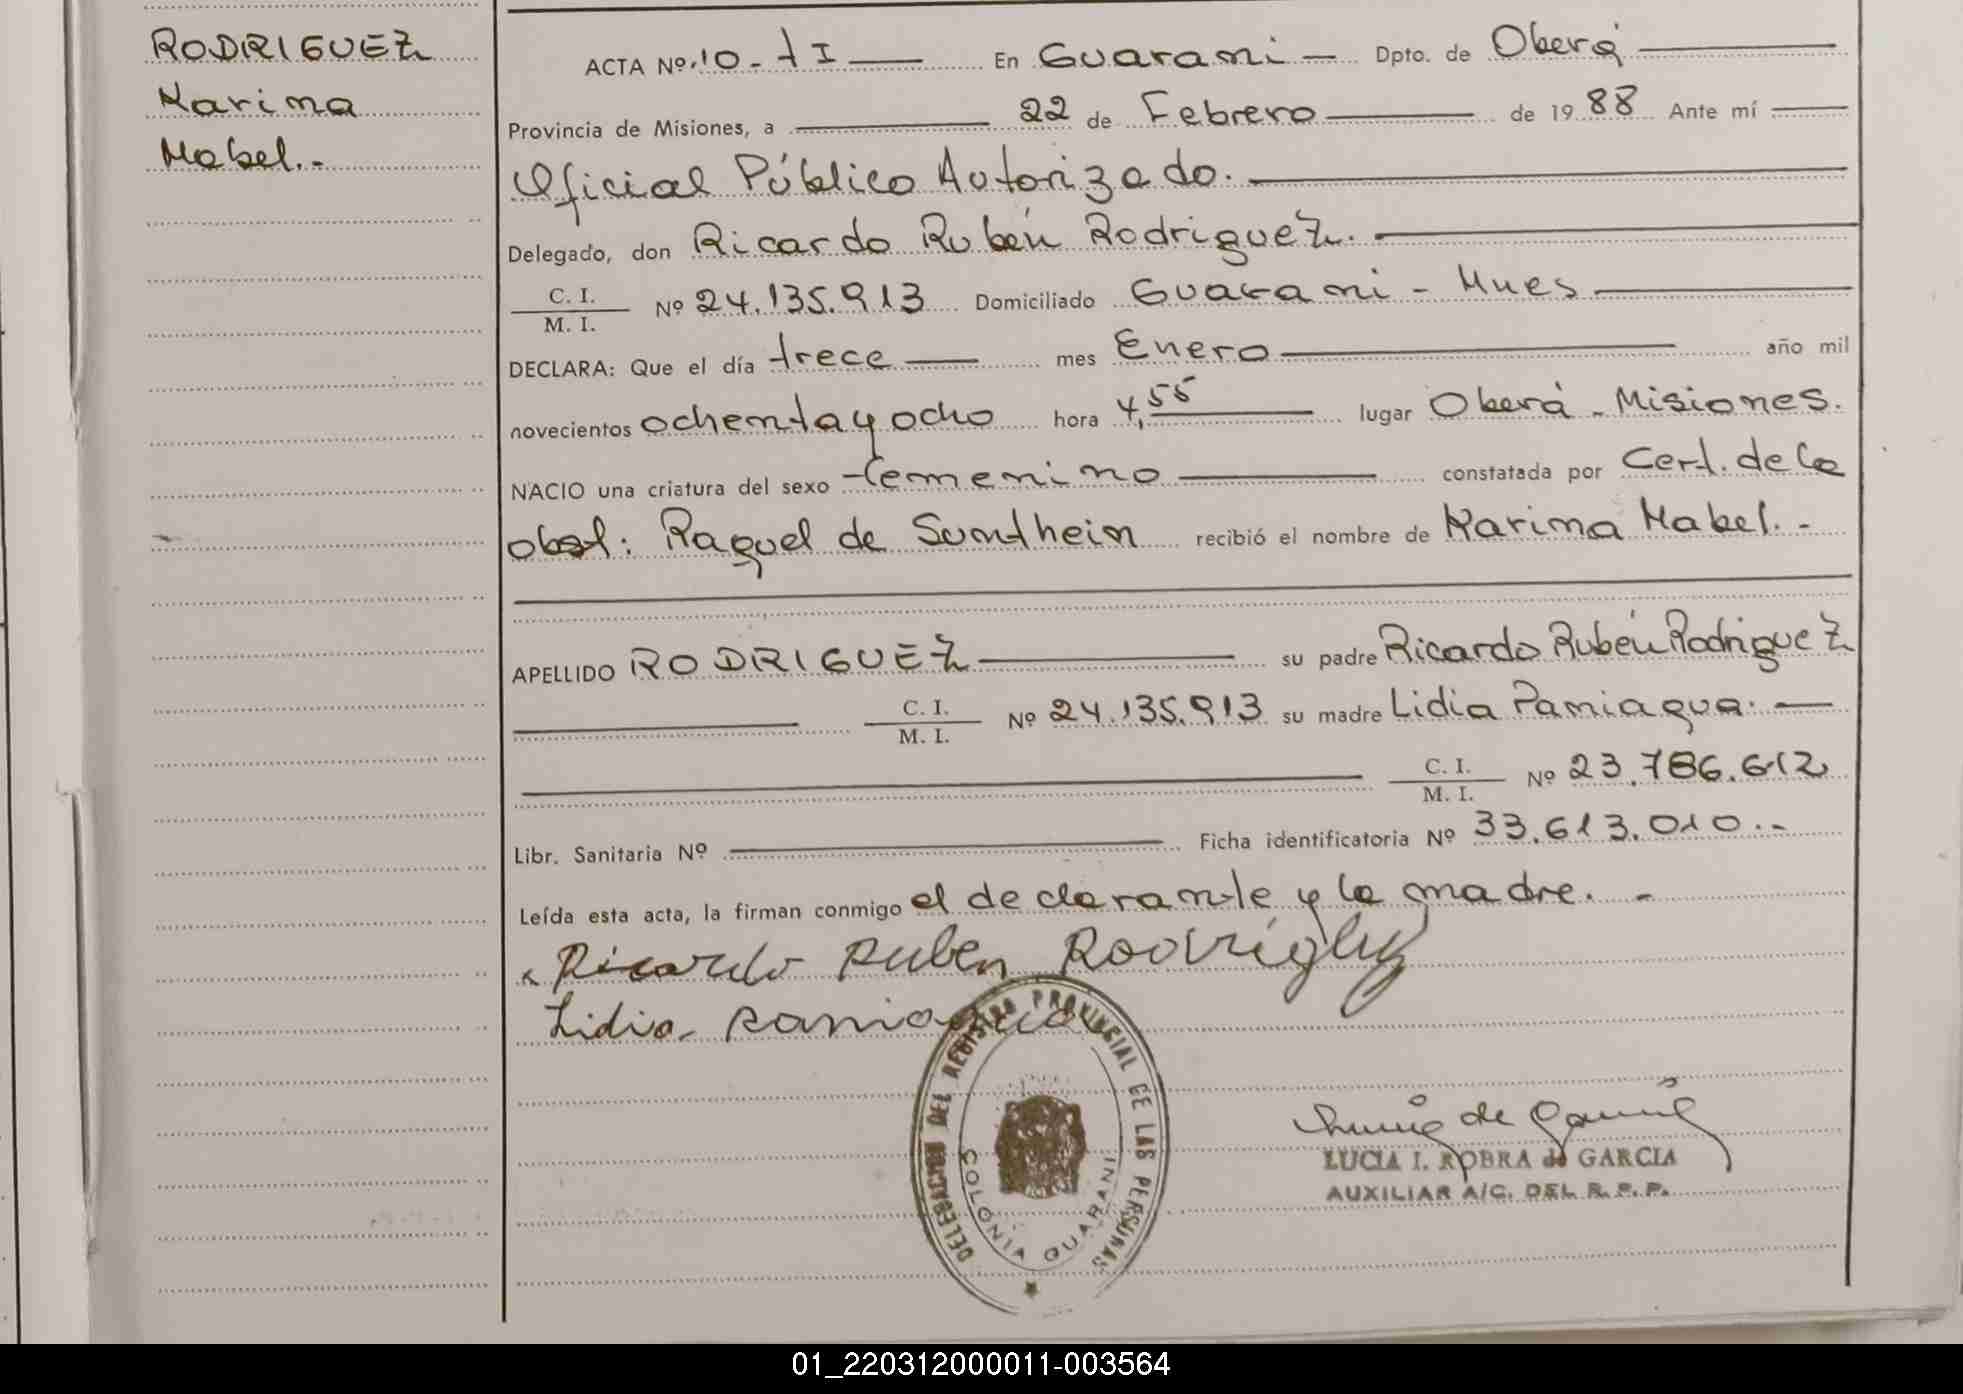 RODRIGUEZ
Karina
Mabel.-
ACTA Nº 10 - t I En Guarani - Dpto. de Oberá
Provincia de Misiones, a 22 de Febrero de 1988 Ante mí
Oficial Público Autorizado.
Delegado, don Ricardo Rubén Rodriguez.
C. I.
M. I. Nº 24.135.913 Domiciliado Guarani - Mnes
DECLARA: Que el día trece mes Enero año mil
novecientos ochenta y ocho hora 4,55 lugar Oberá - Misiones.
NACIO una criatura del sexo femenino constatada por Cert. de la
obst: Raquel de Sumthein recibió el nombre de Karina Mabel. -
APELLIDO RODRIGUEZ su padre Ricardo Rubén Rodriguez
C. I.
M. I. Nº 24.135.913 su madre Lidia Paniagua.
C. I.
M. I. Nº 23.786.612
Libr. Sanitaria Nº Ficha identificatoria Nº 33.613.010.-
Leída esta acta, la firman conmigo el declarante y la madre. -
Ricardo Ruben Rodriguez
Lidia Paniagua
DELEGACION DEL REGISTRO PROVINCIAL DE LAS PERSONAS
COLONIA GUARANI
LUCIA I. ROBRA de GARCIA
AUXILIAR A/C. DEL R. P. P.
01_220312000011-003564